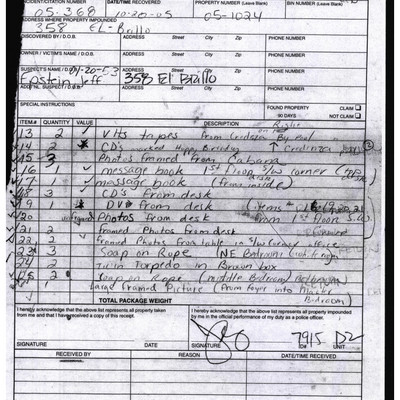 INCIDENT/CITATION NUMBER DATE/TIME RECOVERED PROPERTY NUMBER (Leave Blank) BIN NUMBER (Leave Blank)
05-368 10-20-05 05-1024
ADDRESS WHERE PROPERTY IMPOUNDED
358 EL-Brillo
DISCOVERED BY / D.O.B. ADDRESS Street City Zip PHONE
OWNER / VICTIM'S NAME / D.O.B. ADDRESS Street City Zip PHONE
SUSPECT'S NAME / D.O.B. 01-20-53 ADDRESS Street City Zip PHONE
Epstein, Jeff 358 El Brillo
ADD'NL. SUSPECT / D.O.B. ADDRESS Street City Zip PHONE
SPECIAL INSTRUCTIONS FOUND PROPERTY CLAIM
90 DAYS NOT CLAIM
ITEM# QUANTITY VALUE DESCRIPTION
13 2 VHS tapes from Credenza By
14 2 CD's marked Happy Birthday Credenza
15 3 Photos framed from Cabana
16 1 message book 1st Floor S/W corner
17 1 message book (from inside)
18 3 CD's from desk
19 1 DVD from desk (items
20 Photos from desk from 1st Floor S.W.
21 2 framed Photos from desk corner
22 2 framed Photos from table in S/W corner office
23 3 Soap on Rope (NE Bedroom)
24 2 Twin Torpedo in Brown box
25 2 Soap on Rope (middle Bedroom)
1 Large framed Picture (from foyer into Master
Bedroom)
TOTAL PACKAGE WEIGHT
I hereby acknowledge that the above list represents all property taken
from me and that I have received a copy of this receipt.
I hereby acknowledge that the above list represents all property impounded
by me in the official performance of my duty as a police officer.
7915 D2
SIGNATURE DATE SIGNATURE ID# UNIT
RECEIVED BY REASON DATE/TIME RECEIVED